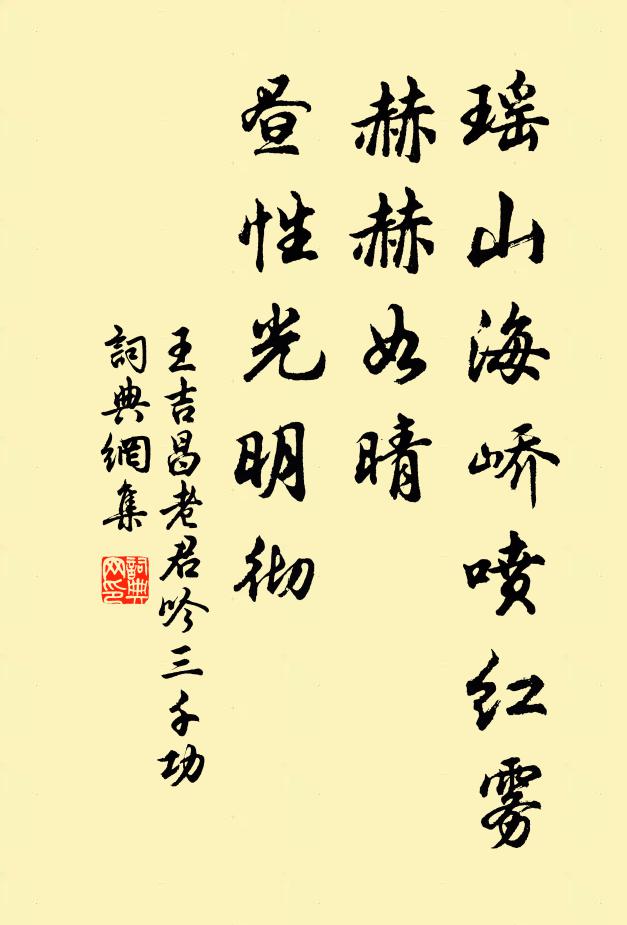 瑶山海峤喷红雾
赫赫如晴
昼性光明彻
王吉昌老君吟三千功
詞典網集
詞典網印